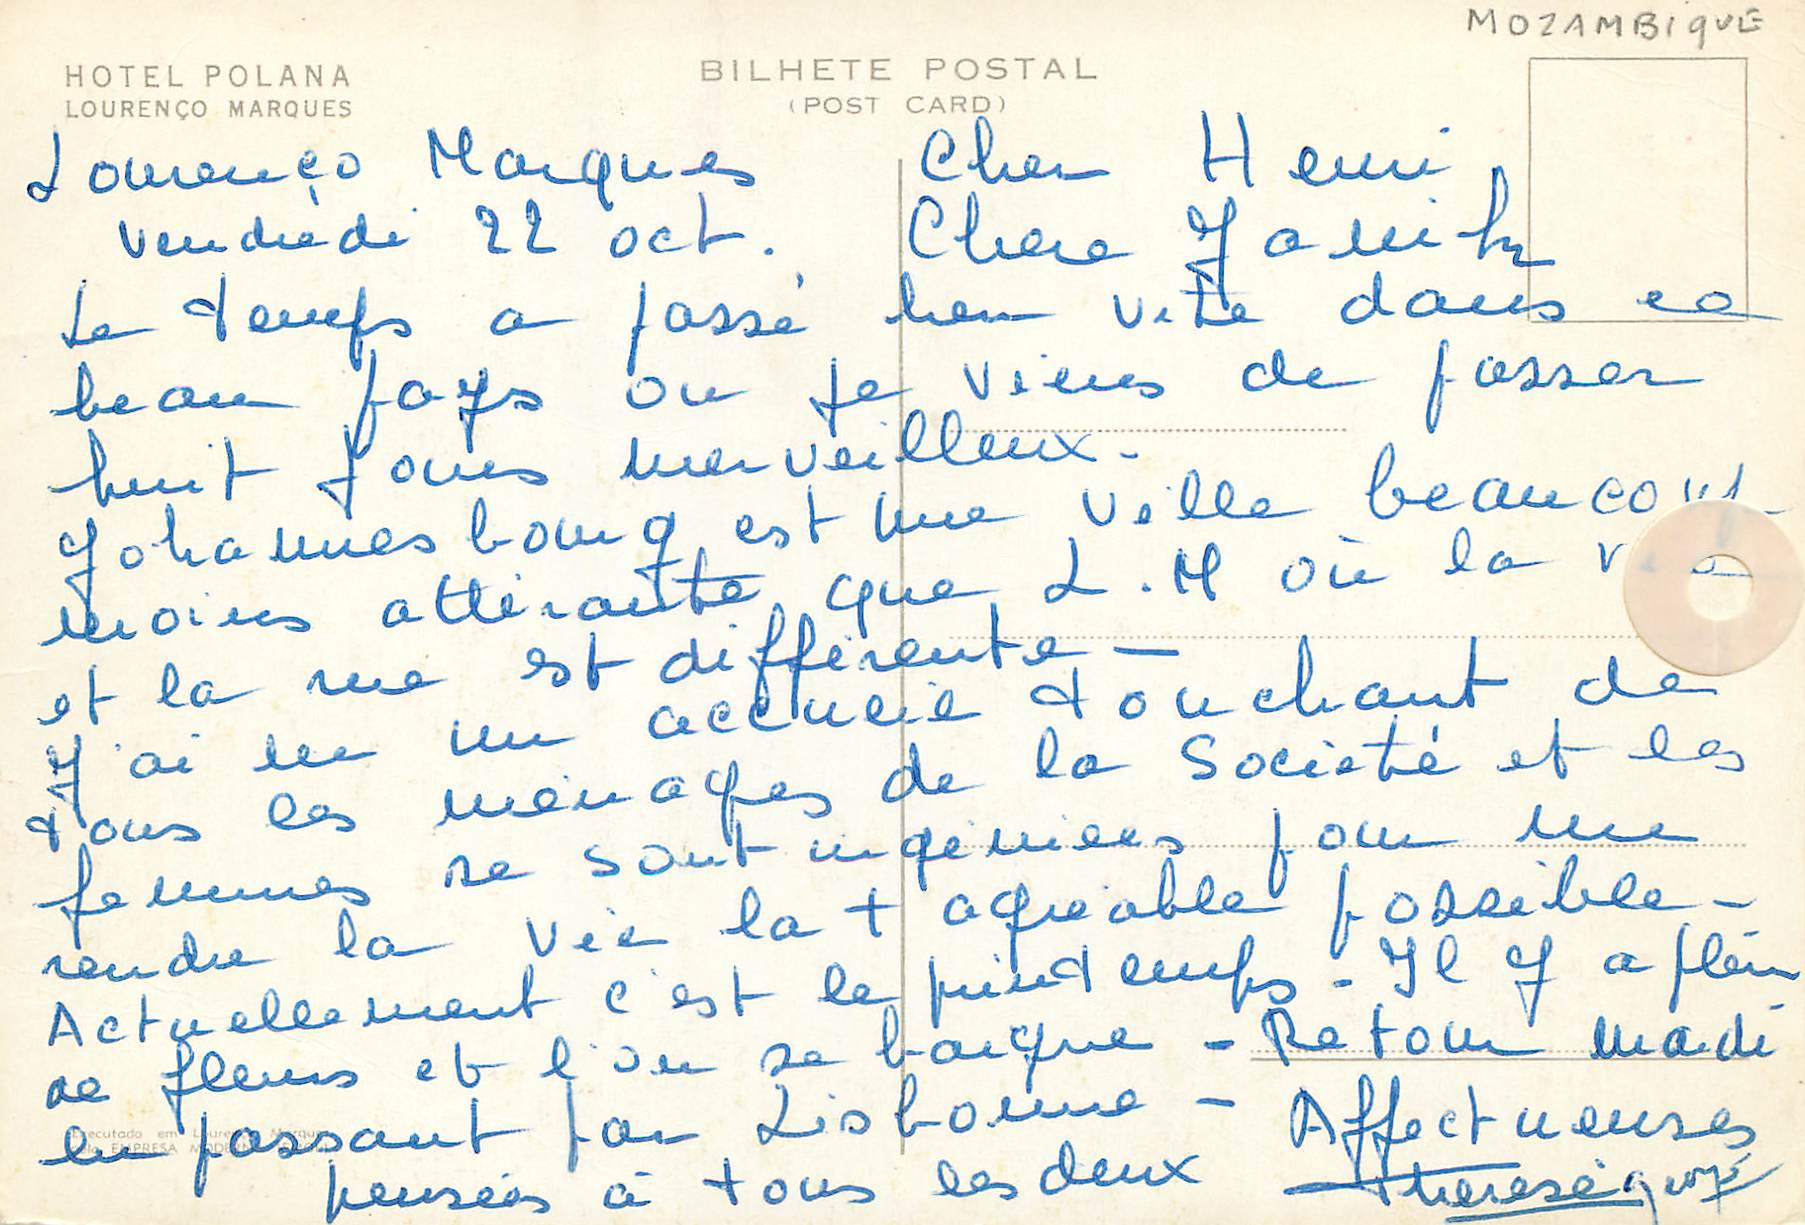 MOZAMBIQUE
HOTEL POLANA
LOURENÇO MARQUES
BILHETE POSTAL
(POST CARD)
Lourenço Marques
vendredi 22 oct.
Cher Henri,
Chere Yanik
Le temps a passé bien vite dans ce
beau pays ou je viens de passer
huit jours merveilleux.
Johannesbourg est une ville beaucoup
moins attirante que L.M où la vie
et la rue est différente —
J'ai eu un accueil touchant de
tous les ménages de la Société et les
femmes se sont ingéniées pour me
rendre la vie la + agréable possible —
Actuellement c'est le printemps - Il y a plein
de fleurs et l'on se baigne - Retour mardi
en passant par Lisbonne - Affectueuses
pensées à tous les deux Therese
Executado em Lourenço Marques
EMPRESA MODERNA